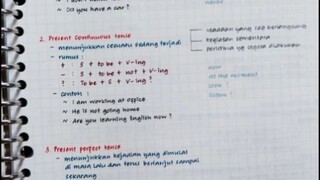 ~ Do you have a car?
2. Present continuous tense
- menunjukkan sesuatu sedang terjadi
- rumus :
+ : S + to be + V-ing
- : S + to be + not + V-ing
? : To be + S + V-ing ?
- contoh :
~ I am working at office
~ He is not going home
~ Are you learning English now?
keadaan yang berlangsung
kegiatan sementara
peristiwa yg
now
at the moment
3. Present perfect tense
- menunjukkan kejadian yang dimulai
di masa lalu dan terus berlanjut sampai
sekarang